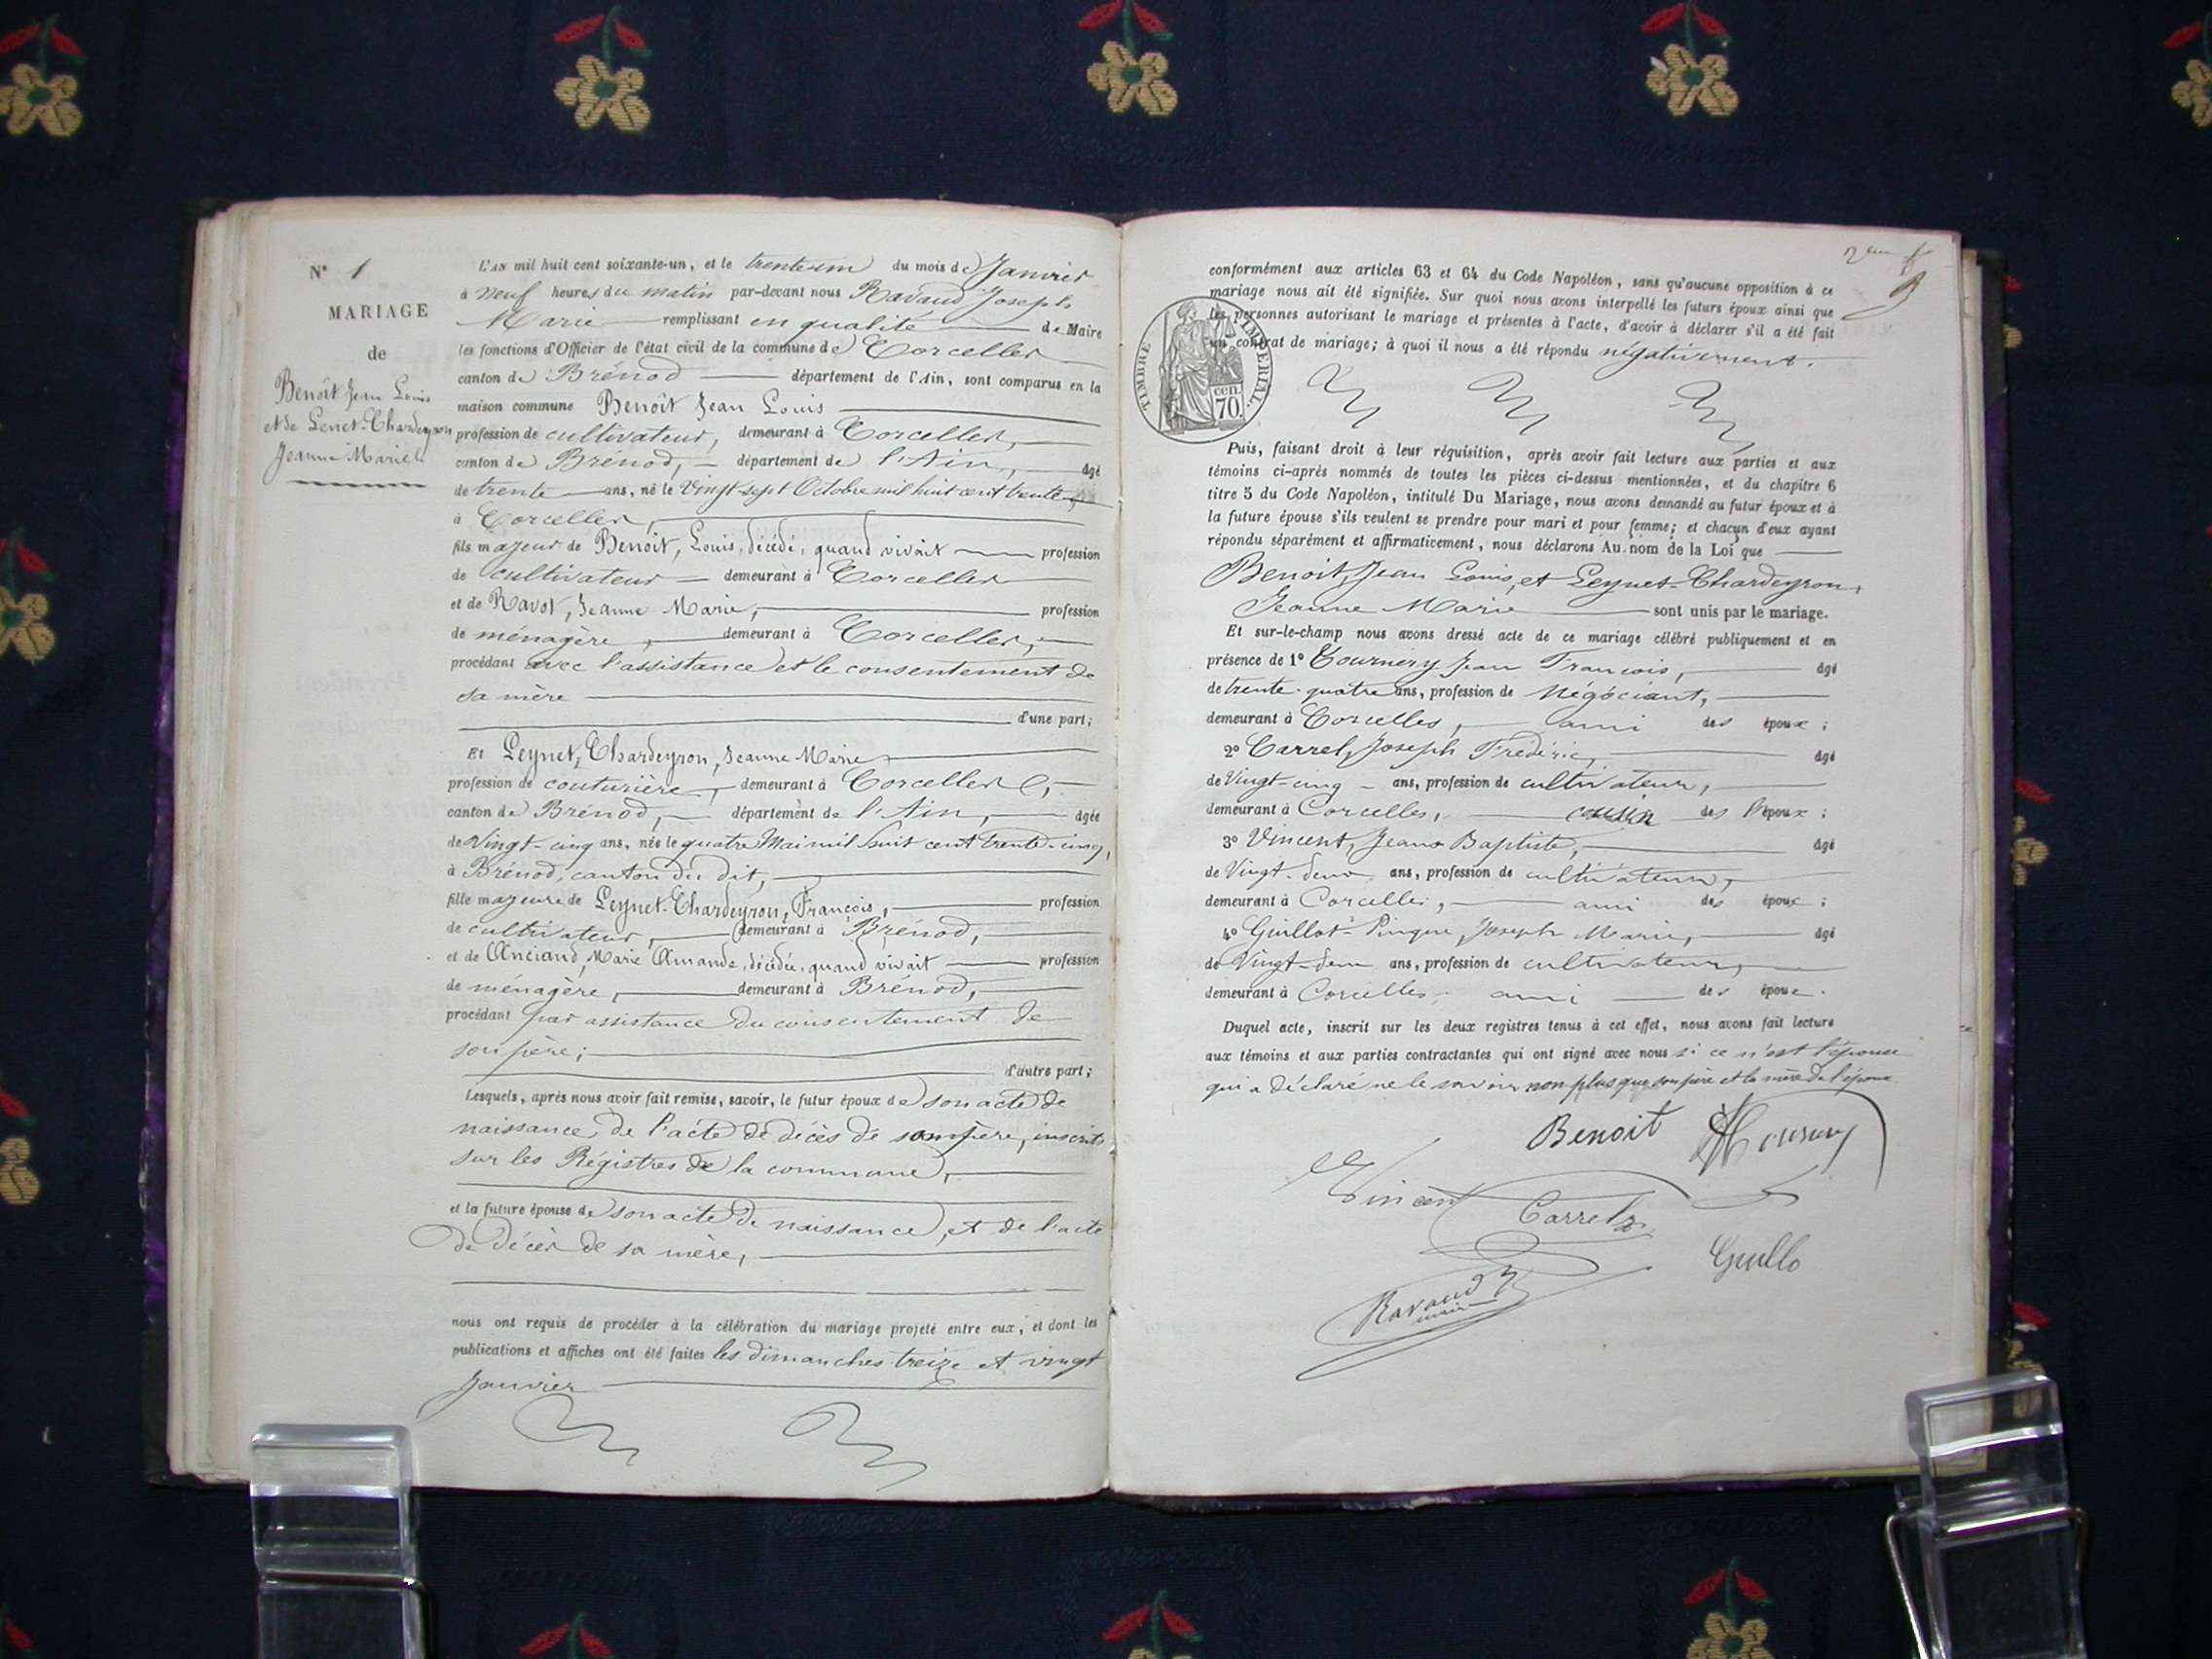 N° 1
MARIAGE
de
Benoît Jean Louis
et de Lenet-Chardeyron
Jeanne Marie
L'AN mil huit cent soixante-un, et le trente-un du mois de Janvier
à neuf heures du matin par-devant nous Ravaud Joseph
Marie remplissant en qualité de Maire
les fonctions d'Officier de l'état civil de la commune de Corcelles
canton de Brénod département de l'Ain, sont comparus en la
maison commune Benoît Jean Louis
profession de cultivateur, demeurant à Corcelles,
canton de Brénod, département de l'Ain, âgé
de trente ans, né le vingt-sept Octobre mil huit cent trente,
à Corcelles,
fils majeur de Benoît, Louis, décédé, quand vivait profession
de cultivateur demeurant à Corcelles
et de Ravot, Jeanne Marie, profession
de ménagère, demeurant à Corcelles,
procédant avec l'assistance et le consentement de
sa mère
d'une part;
Et Leynet-Chardeyron, Jeanne Marie
profession de couturière, demeurant à Corcelles,
canton de Brénod, département de l'Ain, âgée
de Vingt-cinq ans, née le quatre Mai mil huit cent trente-cinq,
à Brénod, canton du dit,
fille majeure de Leynet-Chardeyron, François, profession
de cultivateur, demeurant à Brénod,
et de Anciand, Marie Amande, décédée, quand vivait profession
de ménagère, demeurant à Brénod,
procédant par assistance du consentement de
son père;
d'autre part;
Lesquels, après nous avoir fait remise, savoir, le futur époux de son acte de
naissance, de l'acte de décès de son père, inscrits
sur les Régistres de la commune,
et la future épouse de son acte de naissance, et de l'acte
de décès de sa mère,
nous ont requis de procéder à la célébration du mariage projeté entre eux, et dont les
publications et affiches ont été faites les dimanches treize et vingt
Janvier
conformément aux articles 63 et 64 du Code Napoléon, sans qu'aucune opposition à ce
mariage nous ait été signifiée. Sur quoi nous avons interpellé les futurs époux ainsi que
les personnes autorisant le mariage et présentes à l'acte, d'avoir à déclarer s'il a été fait
un contrat de mariage; à quoi il nous a été répondu négativement.
TIMBRE IMPÉRIAL.
cen.
70.
Puis, faisant droit à leur réquisition, après avoir fait lecture aux parties et aux
témoins ci-après nommés de toutes les pièces ci-dessus mentionnées, et du chapitre 6
titre 5 du Code Napoléon, intitulé Du Mariage, nous avons demandé au futur époux et à
la future épouse s'ils veulent se prendre pour mari et pour femme; et chacun d'eux ayant
répondu séparément et affirmativement, nous déclarons Au nom de la Loi que
Benoit, Jean Louis, et Leynet-Chardeyron,
Jeanne Marie sont unis par le mariage.
Et sur-le-champ nous avons dressé acte de ce mariage célébré publiquement et en
présence de 1° Tournery Jean François, âgé
de trente-quatre ans, profession de négociant,
demeurant à Corcelles, ami des époux;
2° Carrel, Joseph Fréderic, âgé
de Vingt-cinq ans, profession de cultivateur,
demeurant à Corcelles, cousin des époux;
3° Vincent, Jean Baptiste, âgé
de Vingt-deux ans, profession de cultivateur,
demeurant à Corcelles, ami des époux;
4° Guillot-Pingue, Joseph Marie, âgé
de Vingt-deux ans, profession de cultivateur,
demeurant à Corcelles, ami des époux.
Duquel acte, inscrit sur les deux registres tenus à cet effet, nous avons fait lecture
aux témoins et aux parties contractantes qui ont signé avec nous si ce n'est l'épouse
qui a déclaré ne le savoir non plus que son père et la mère de l'époux.
Benoit
Vincent
Carrel
Guillo
Ravaud
maire